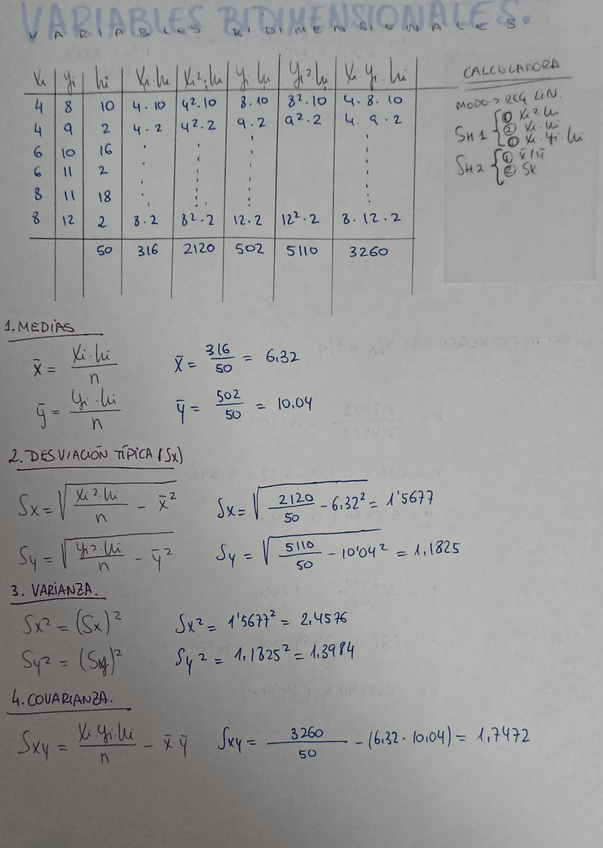 VARIABLES BIDIMENSIONALES.
VARIABLES BIDIMENSIONALES
xi yi hi xi hi xi²·hi yi hi yi² hi xi yi·hi
4 8 10 4.10 4².10 8.10 8².10 4.8.10
4 9 2 4.2 4².2 9.2 9².2 4.9.2
6 10 16
6 11 2
8 11 18
8 12 2 8.2 8².2 12.2 12².2 8.12.2
50 316 2120 502 5110 3260
CALCULADORA
MODO > REG LIN.
SH1 { ① xi²·hi
② xi·hi
③ xi·yi hi
SH2 { ① x̄/ȳ
② Sx
1. MEDIAS
x̄ = xi·hi / n x̄ = 316 / 50 = 6,32
ȳ = yi·hi / n ȳ = 502 / 50 = 10,04
2. DESVIACIÓN TÍPICA (Sx)
Sx = √(xi²·hi / n - x̄²) Sx = √(2120 / 50 - 6,32²) = 1'5677
Sy = √(yi²·hi / n - ȳ²) Sy = √(5110 / 50 - 10'04²) = 1,1825
3. VARIANZA.
Sx² = (Sx)² Sx² = 1'5677² = 2,4576
Sy² = (Sy)² Sy² = 1,1825² = 1,3984
4. COVARIANZA.
Sxy = xi·yi·hi / n - x̄ ȳ Sxy = 3260 / 50 - (6,32·10,04) = 1,7472